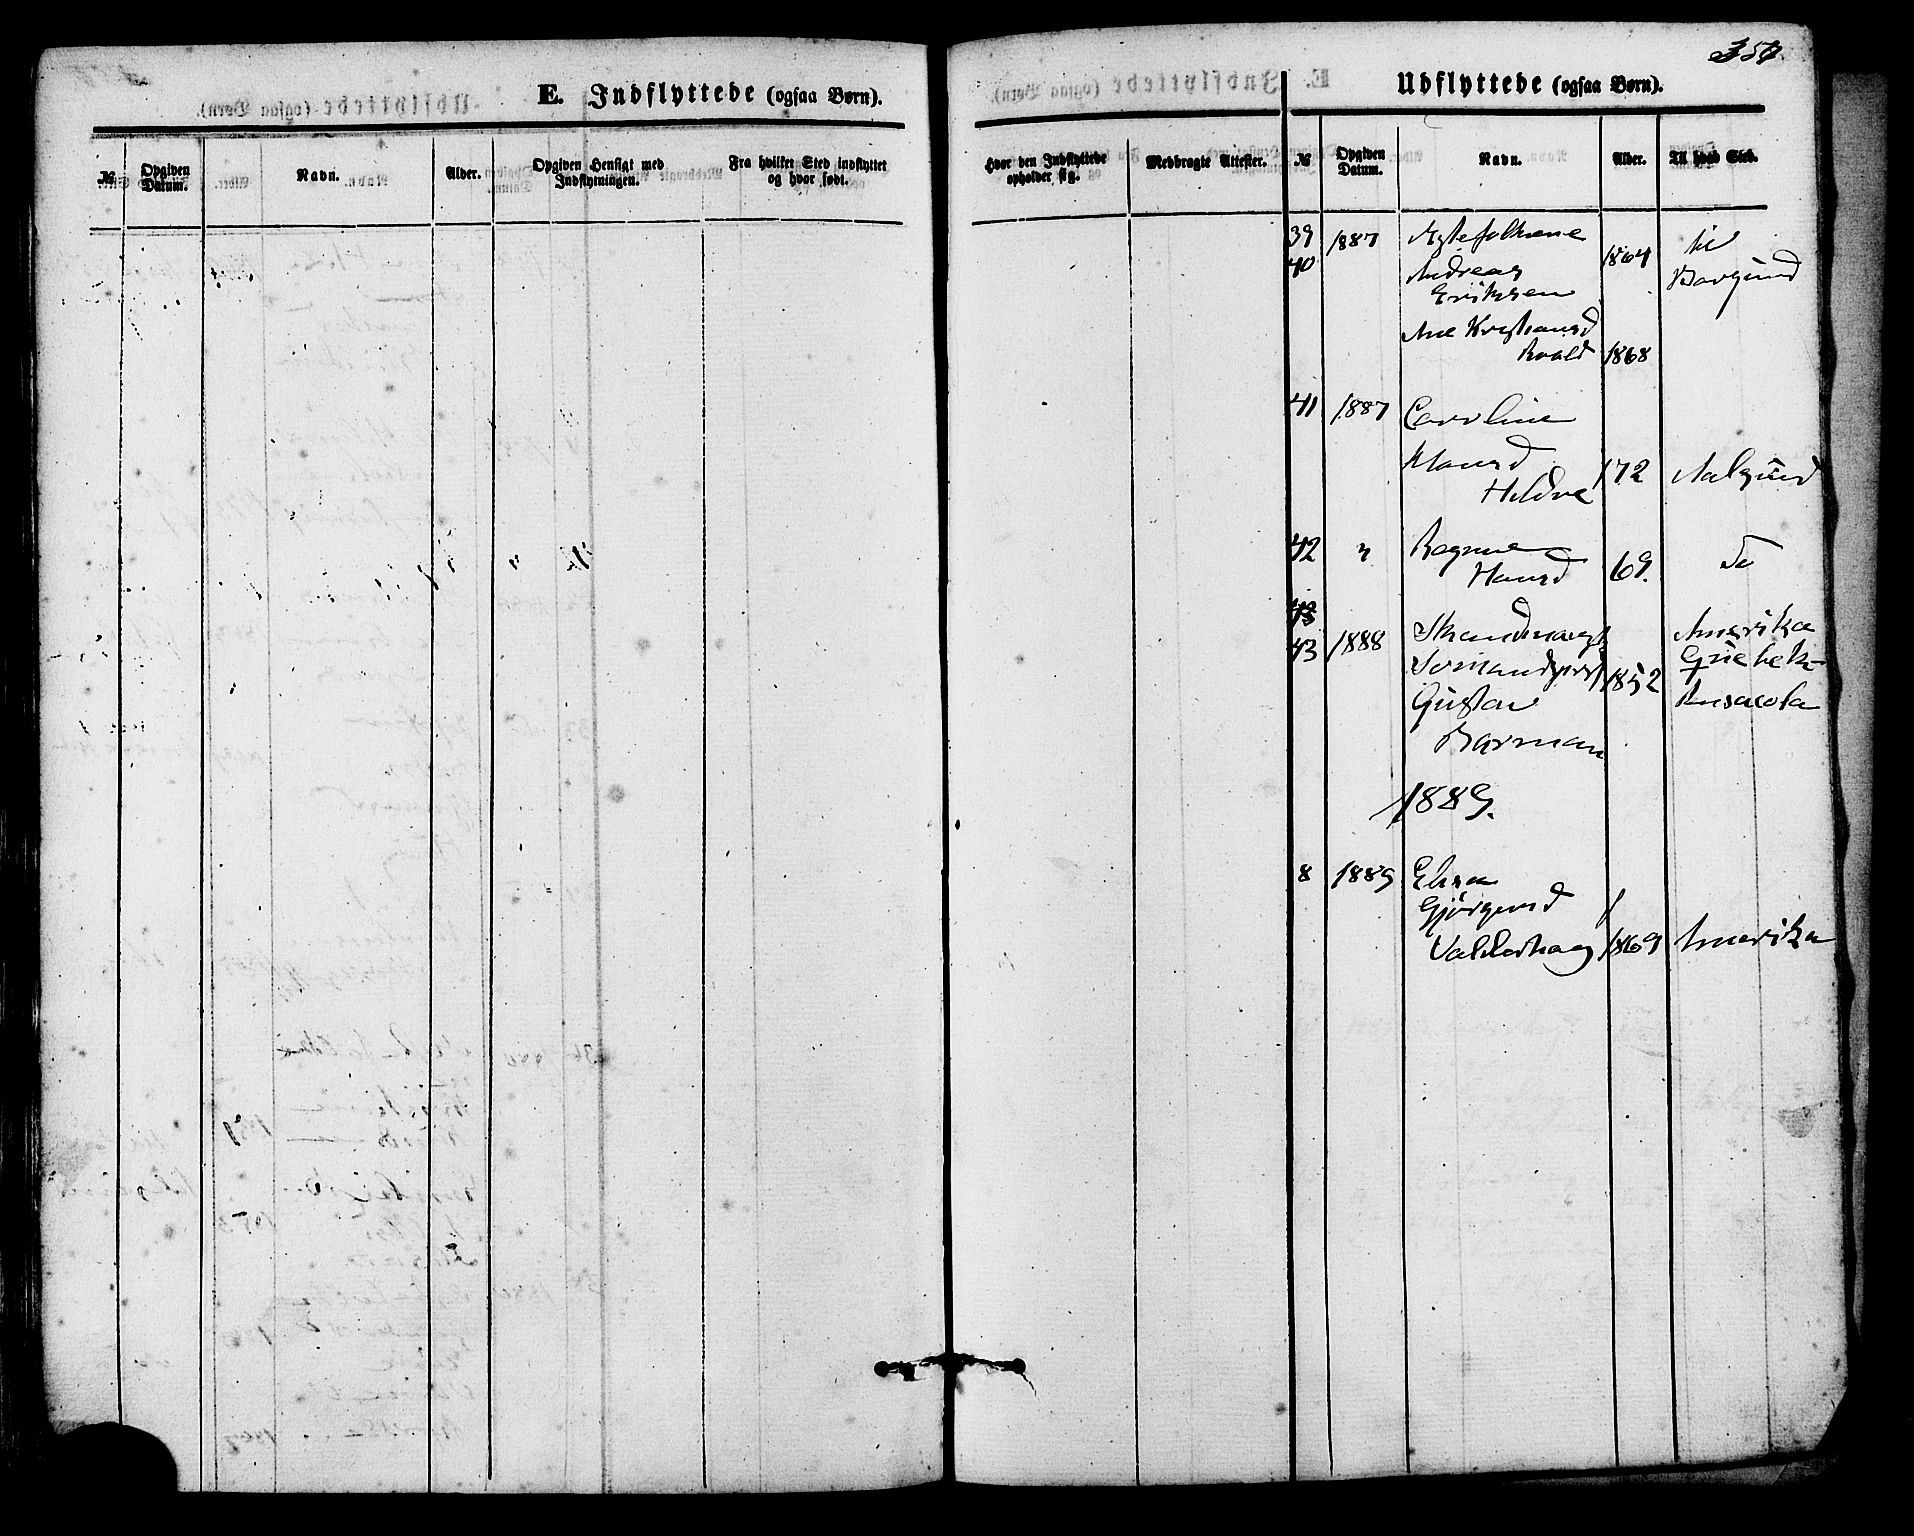 E. Indflyttede (ogsaa Børn).
№
Opgiven Datum.
Navn.
Alder.
Opgiven Hensigt med Indflytningen.
Fra hvilket Sted indflyttet og hvor født.
Hvor den Indflyttede opholder sig.
Medbragte Attester.
Udflyttede (ogsaa Børn).
№
Opgiven Datum.
Navn.
Alder.
Til hvad Sted.
39 1887 Ægtefolkene til
40 Andreas 1864 Borgund
Eriksen
Ane Kristiansd
Roald 1868
41 1887 Caroline
Klausd 172 Aalesund
Hildre
42 " Ragna
Hansd 69. Do
43 1888 Amerika
Quebek
1852
Gustav
Barman
1889.
8 1889 Elisa
Gjørgensd
Valderhaug 1869 Amerika